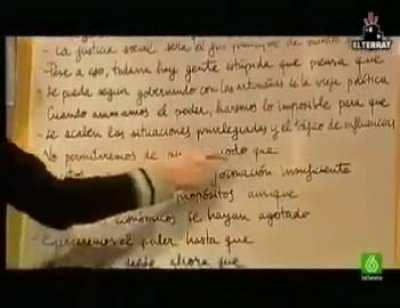 - La justicia social será el fin principal de nuestro
- Pese a eso, todavía hay gente estúpida que piensa que
- Se pueda seguir gobernando con las artimañas de la vieja política
Cuando asumamos el poder, haremos lo imposible para que
- Se acaben las situaciones privilegiadas y el tráfico de influencias
No permitiremos de modo que
formación insuficiente
propósitos aunque
económicos se hayan agotado
- Ejerceremos el poder hasta que
desde ahora que
EL TERRAT
6
laSexta